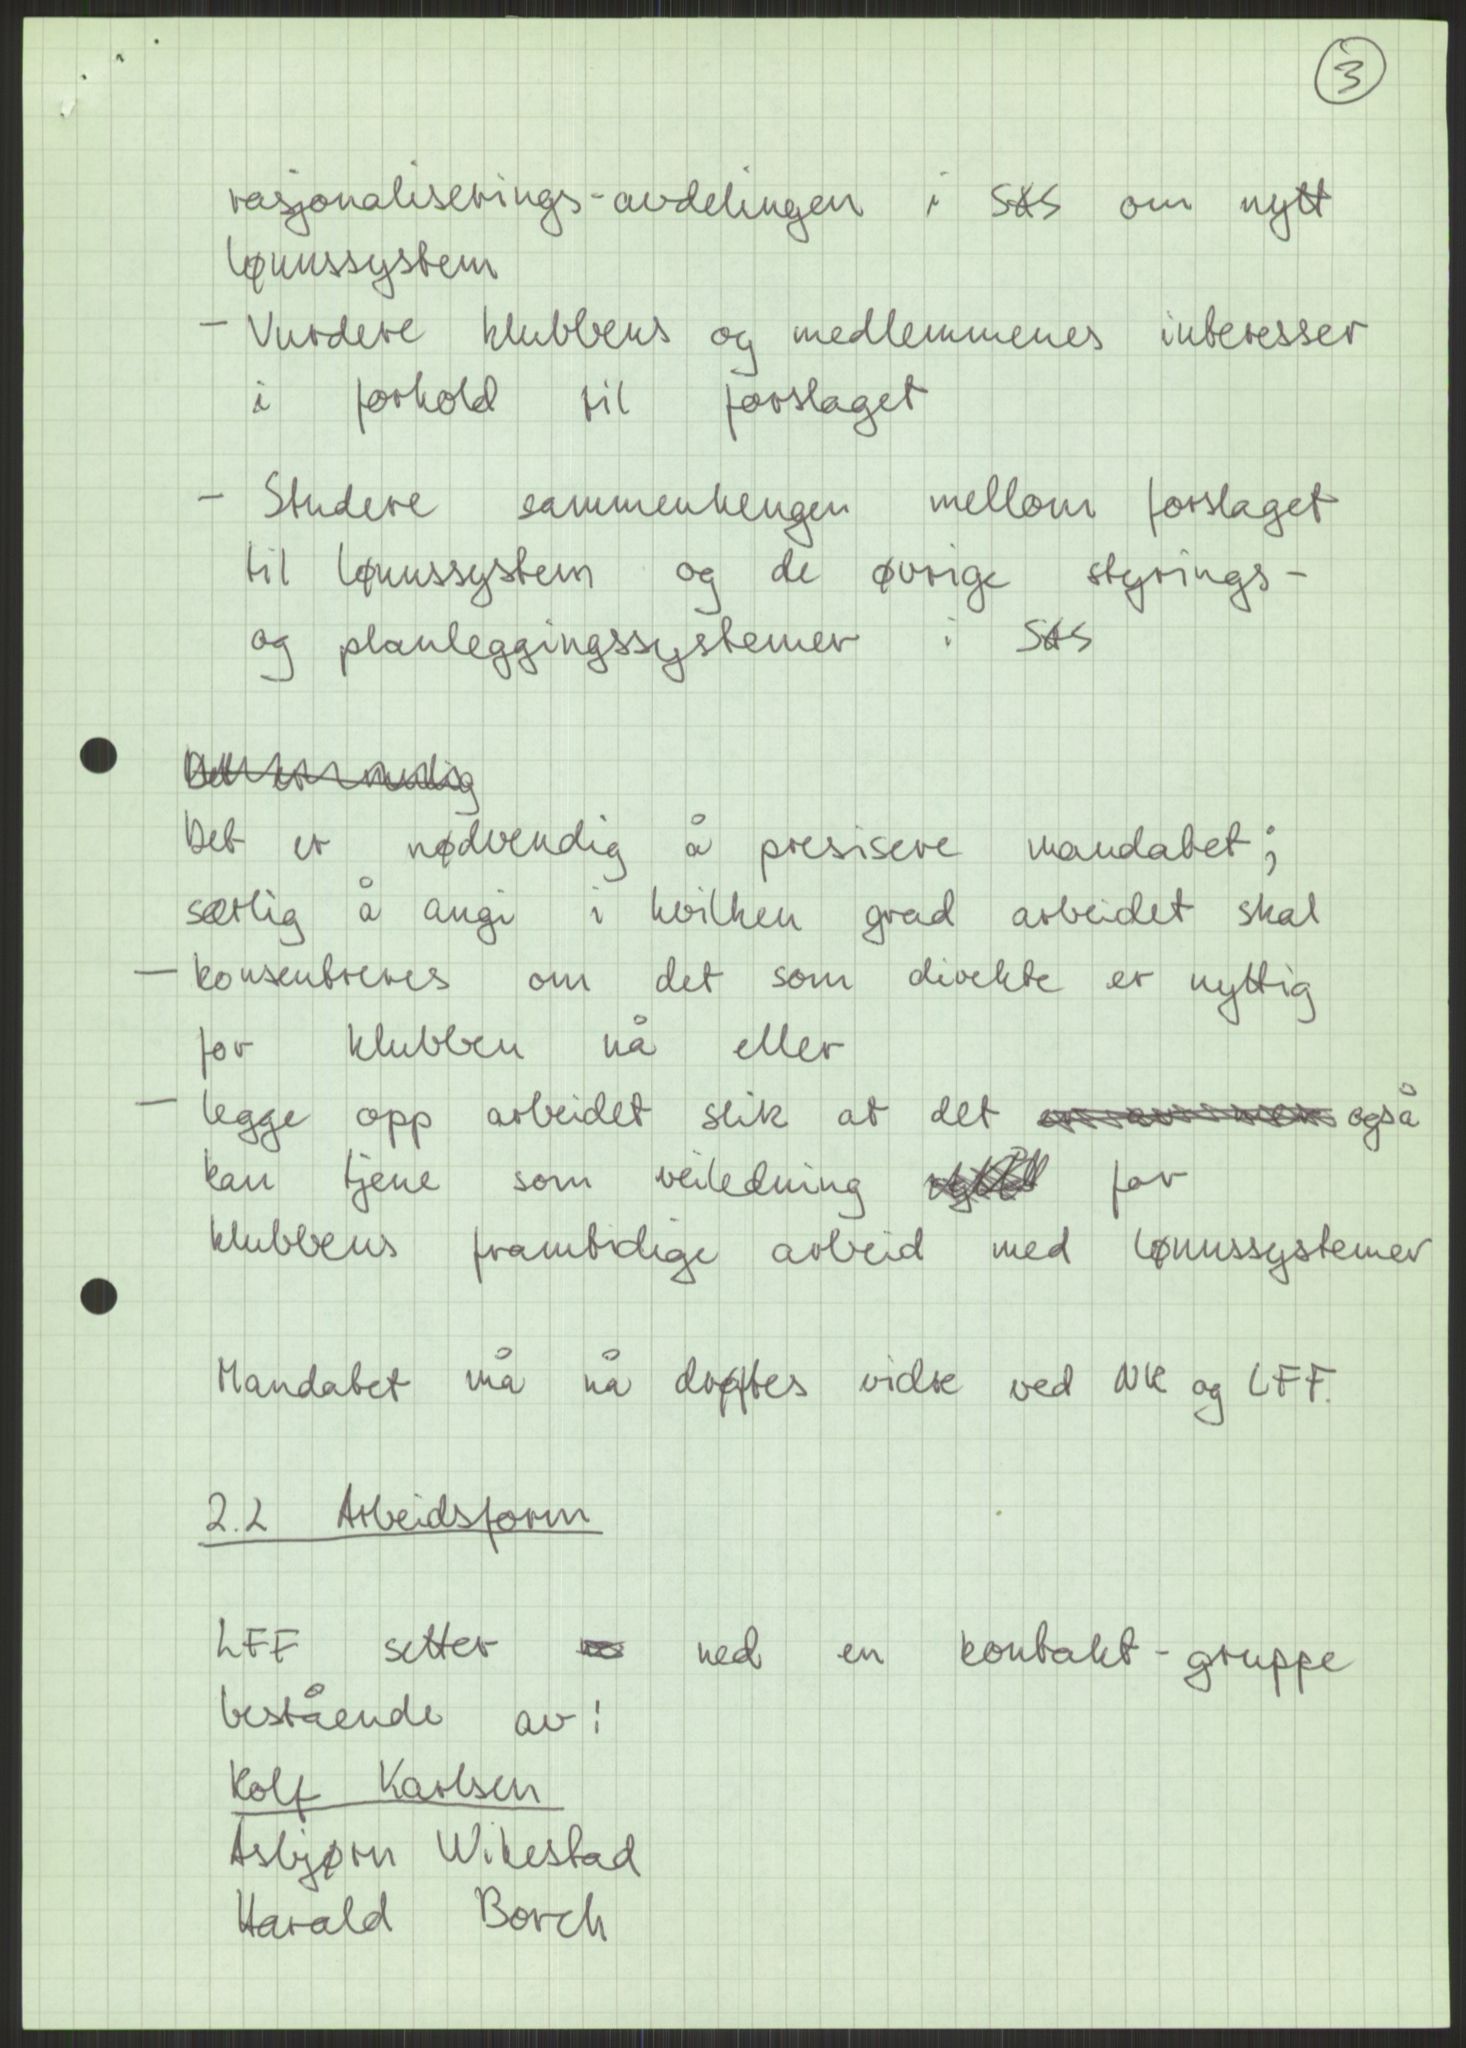 3
rasjonaliserings-avdelingen i SAS om nytt
lønnssystem
- Vurdere klubbens og medlemmenes interesser
i forhold til forslaget
- Studere sammenhengen mellom forslaget
til lønnssystem og de øvrige styrings-
og planleggingssystemer i SAS
Det er nødvendig å presisere mandatet;
særlig å angi i hvilken grad arbeidet skal
- konsentreres om det som direkte er nyttig
for klubben nå eller
- legge opp arbeidet slik at det også
kan tjene som veiledning for
klubbens framtidige arbeid med lønnssystemer
Mandatet må nå drøftes vidre ved NR og LFF.
2.2 Arbeidsform
LFF setter ned en kontakt-gruppe
bestående av:
Rolf Karlsen
Asbjørn Wikestad
Harald Borch